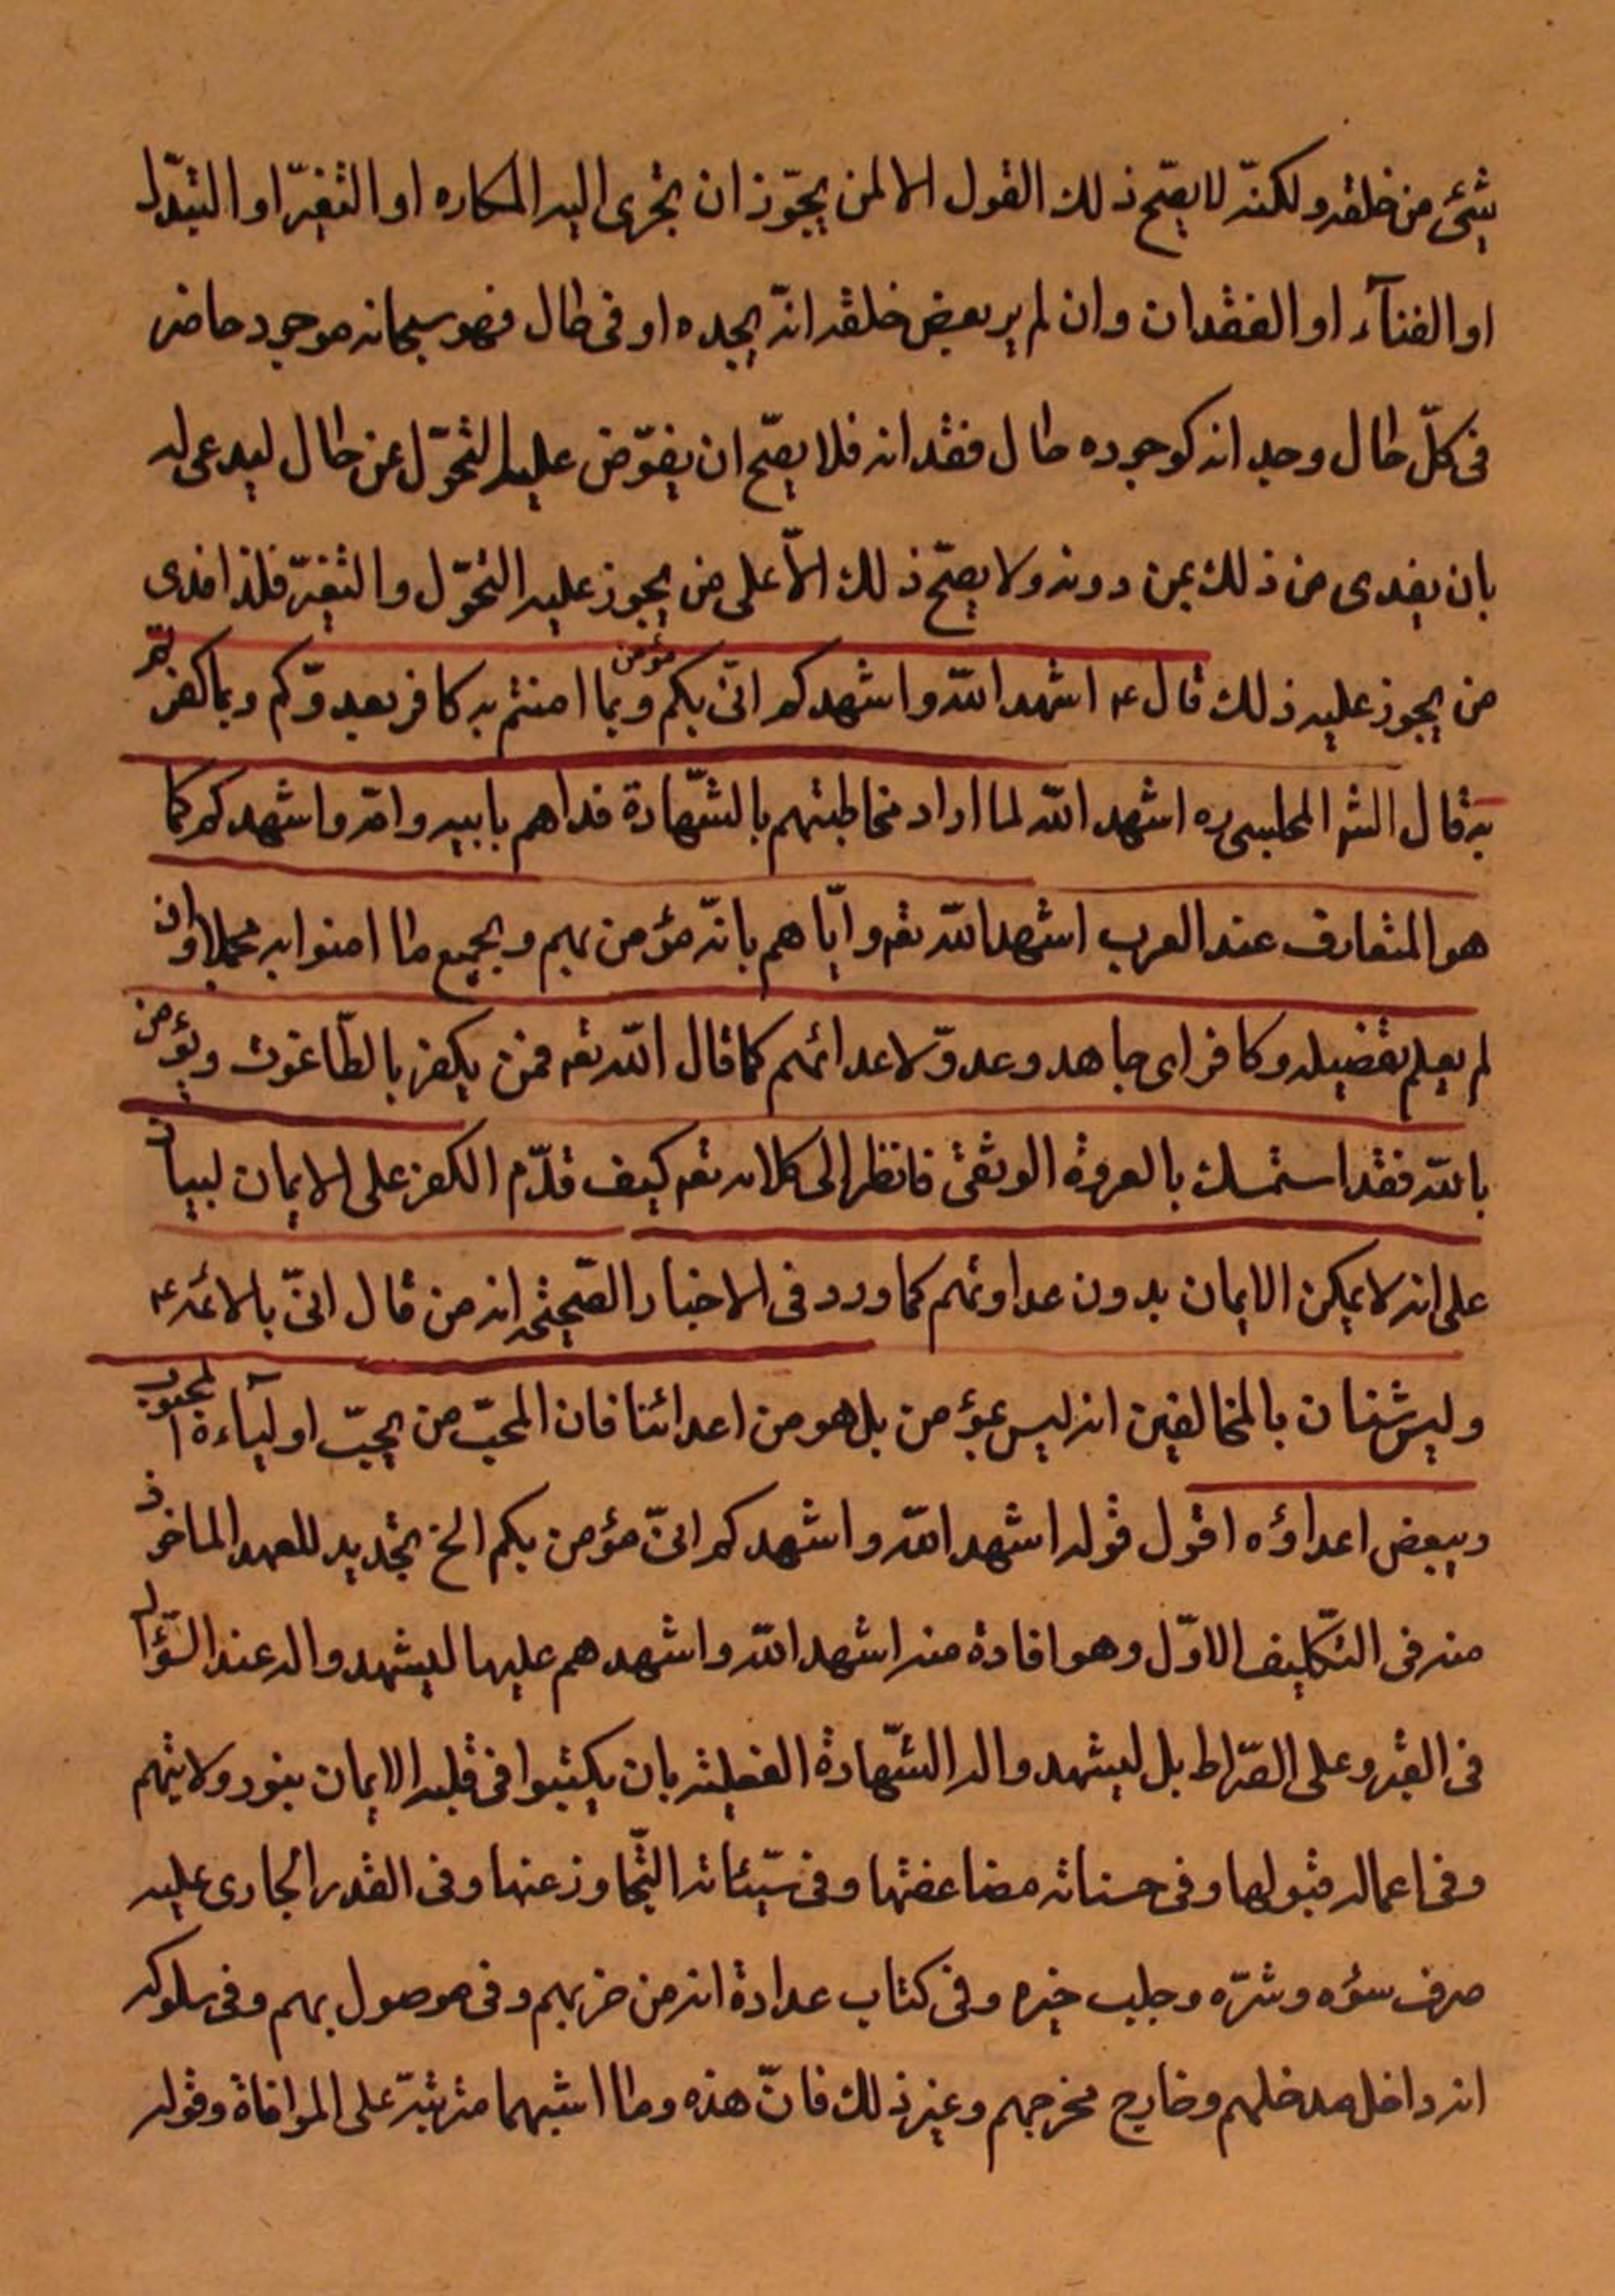 شئ من خلقه ولكنّه لا يصّح ذلك القول الا لمن يجّوز ان يجرى اليه المكاره او التغيّر او التبدّل
او الفنآء او الفقدان وان لم ير بعض خلقه انّه يجده او فى حال فهو سبحانه موجود حاضر
فى كلّ حال وجدانه كوجوده حال فقدانه فلا يصّح ان يفوّض عليه التحّول عن حال ليدعى له
بان يفدى من ذلك بمن دونه ولا يصّح ذلك الّا على من يجوز عليه التحّول والتغيّر فلذا فدى
من يجوز عليه ذلك قال ع اشهد الله واشهدكم انّى مؤمن بكم وبما امنتم به كافر بعدوّكم وبما كفرتم
به قال الشر المجلسى ره اشهد الله لما اراد مخاطبتهم بالشّهادة فداهم بابيه وامّه واشهدكم كما
هو المتعارف عند العرب اشهد الله تعه وايّاهم بانّه مؤمن بهم وبجميع ما امنوا به مجملا وان
لم يعلم تفضيله وكافر اى جاهد وعدوّ لاعدائهم كما قال الله تعه فمن يكفر بالطّاغوت ويؤمن
بالله فقد استمسك بالعروة الوثقى فانظر الى كلامه تعه كيف قدّم الكفر على الايمان لبيان
على انه لا يمكن الايمان بدون عداوتهم كما ورد فى الاخبار الصّحيحة انه من قال انّى بالائمّة ع
وليس شنان بالمخالفين انه ليس بمؤمن بل هو من اعدائنا فان المحبّ من يحبّ اوليآءة المحبوب
ويبغض اعداؤه اقول قوله اشهد الله واشهدكم انّى مؤمن بكم الخ تجديد للعهد الماخوذ
منه فى التّكليف الاوّل وهو افادة منه اشهد الله واشهدهم عليها ليشهدوا له عند السّؤال
فى القبر وعلى الصّراط بل ليشهدوا له الشّهادة الفعلية بان يكتبوا فى قلبه الايمان بنور ولايتهم
وفى اعماله قبولها وفى حسناته مضاعفتها وفى سّيئاته التّجاوز عنها وفى القدر الجارى عليه
صرف سؤه وشرّه وجلب خيره وفى كتاب عدادة انه من حزبهم وفى موصول بهم وفى سلوكه
انه داخل مدخلهم وخارج مخرجهم وغير ذلك فانّ هذه وما اشبهها مترتبّة على الموافاة وقوله